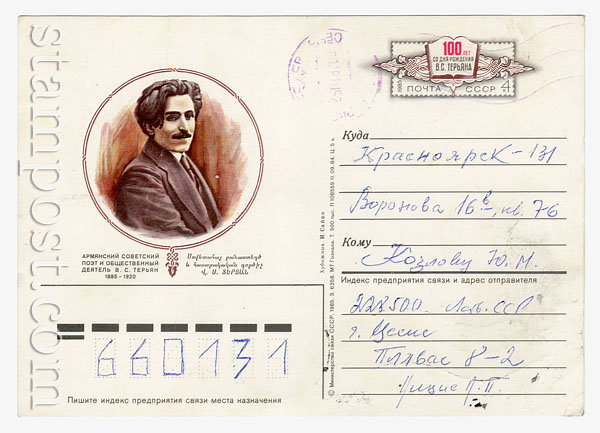 stampost.com
АРМЯНСКИЙ СОВЕТСКИЙ
ПОЭТ И ОБЩЕСТВЕННЫЙ
ДЕЯТЕЛЬ В. С. ТЕРЬЯН
1885 – 1920
Սովետահայ բանաստեղծ
և հասարակական գործիչ
Վ. Ս. ՏԵՐՅԱՆ
660131
Пишите индекс предприятия связи места назначения
Художник И. Сайко
© Министерство связи СССР, 1985. З. 6358. МТ Гознака. Т. 500 тыс. Л 108059 11. 09. 84. Ц. 5 к.
100 ЛЕТ
СО ДНЯ РОЖДЕНИЯ
В.С. ТЕРЬЯНА
1985
ПОЧТА СССР 4
Куда
Красноярск-131
Воронова 16в, кв. 76
Кому
Козлову Ю. М.
Индекс предприятия связи и адрес отправителя
228500 Латв. ССР
г. Цесис
8-2
П.П.